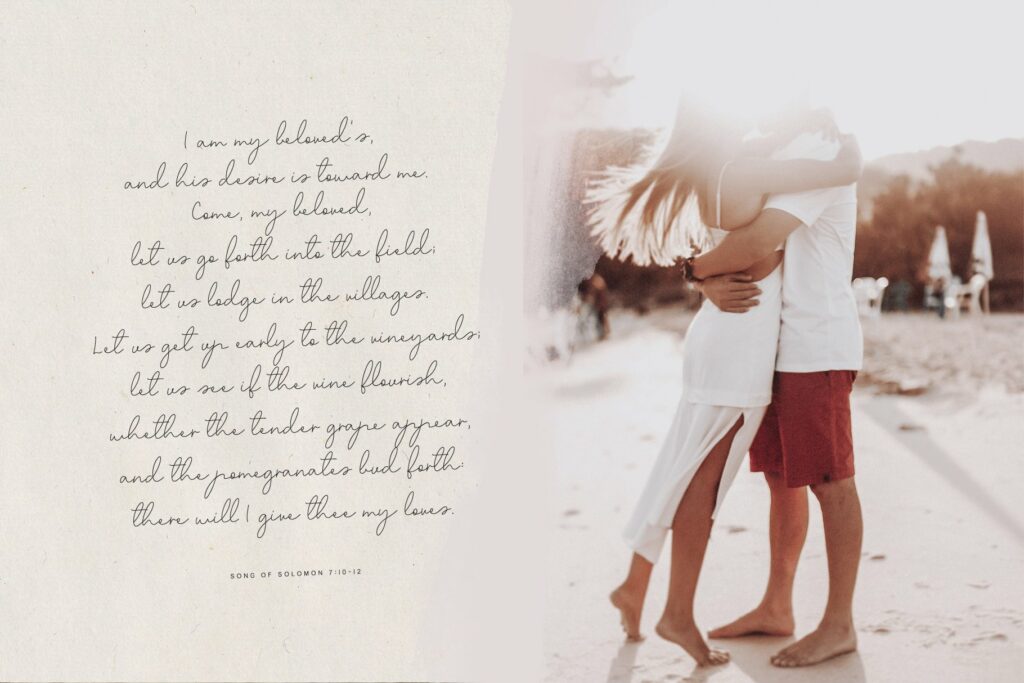 I am my beloved's,
and his desire is toward me.
Come, my beloved,
let us go forth into the field;
let us lodge in the villages.
Let us get up early to the vineyards;
let us see if the vine flourish,
whether the tender grape appear,
and the pomegranates bud forth:
there will I give thee my loves.
SONG OF SOLOMON 7:10-12